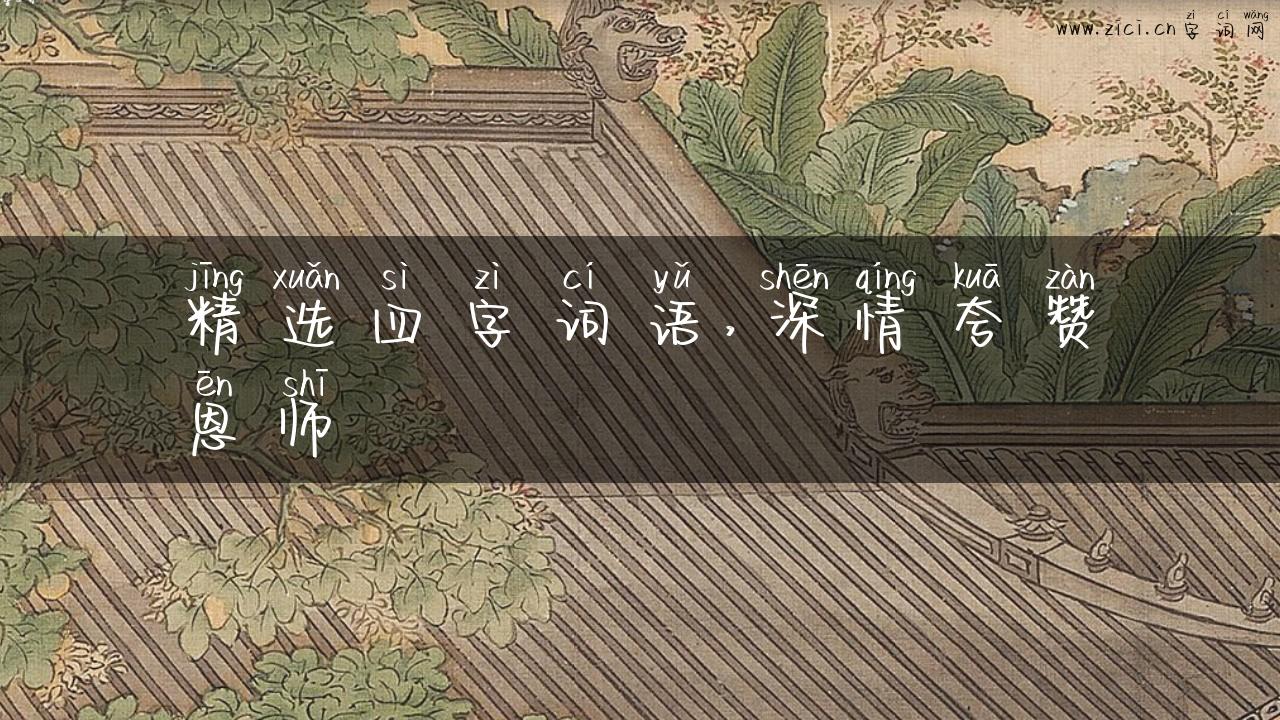 www.zici.cn 字词网
zì cí wǎng
jīng xuǎn sì zì cí yǔ shēn qíng kuā zàn
精选四字词语,深情夸赞
ēn shī
恩师